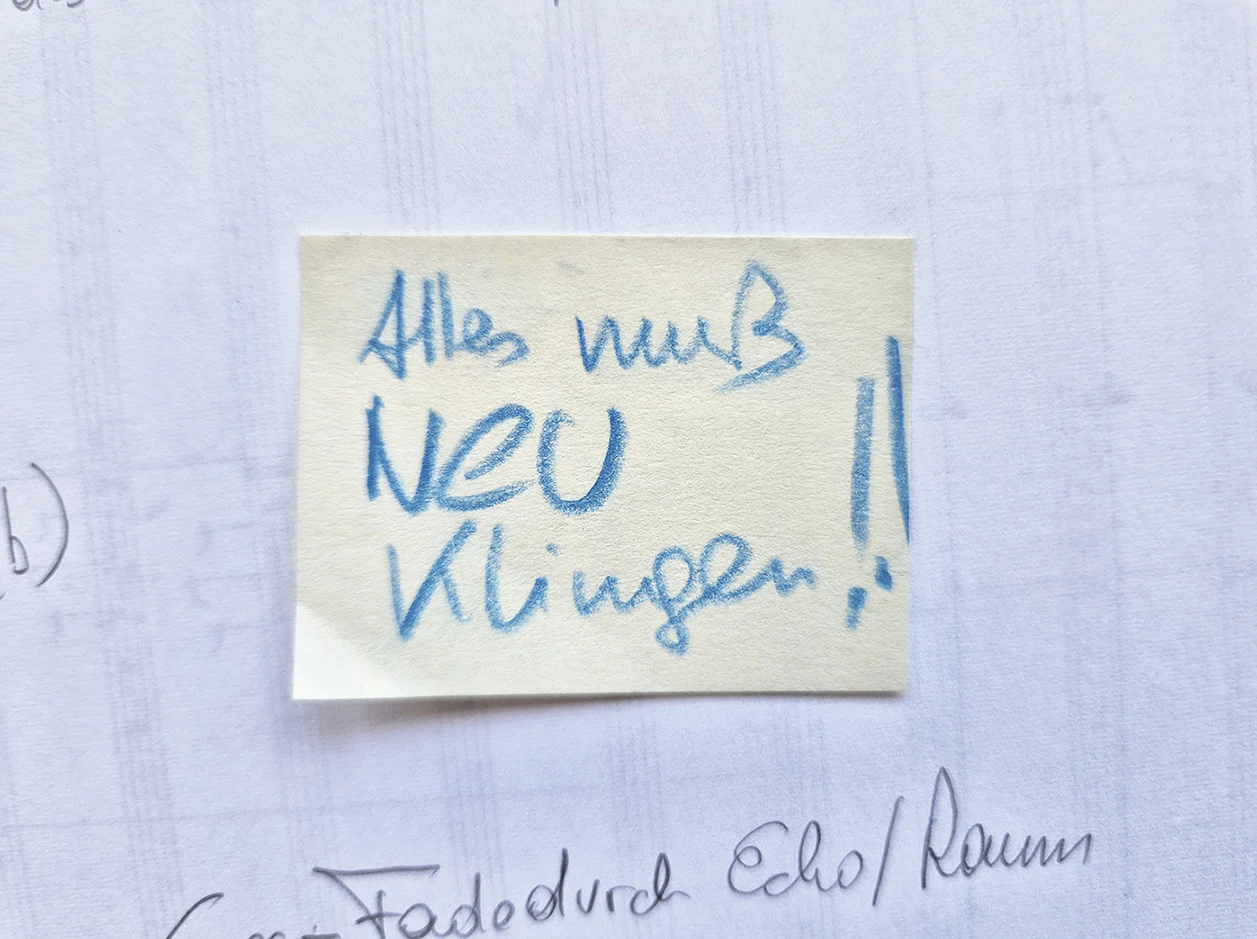 Alles muß
NEU
Klingen!!
b)
Fade durch Echo/Raum